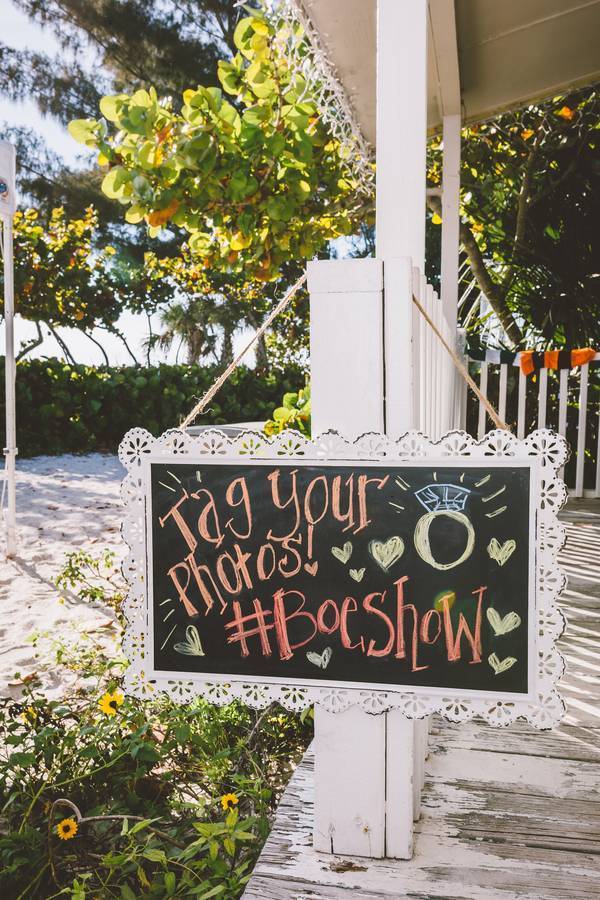 Tag Your
Photos!
#BoeShoW